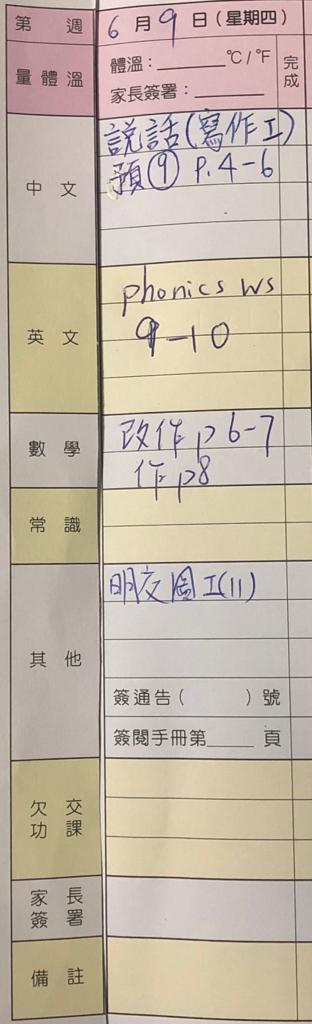 第 週 6月9日(星期四)
量體溫 體溫：______°C/°F 完成
家長簽署：______
中文 說話(寫作工)
預⑨ P.4-6
英文 phonics ws
9-10
數學 改作 p6-7
作 p8
常識
其他 明交圖工(11)
簽通告( )號
簽閱手冊第____頁
欠交功課
家長簽署
備註